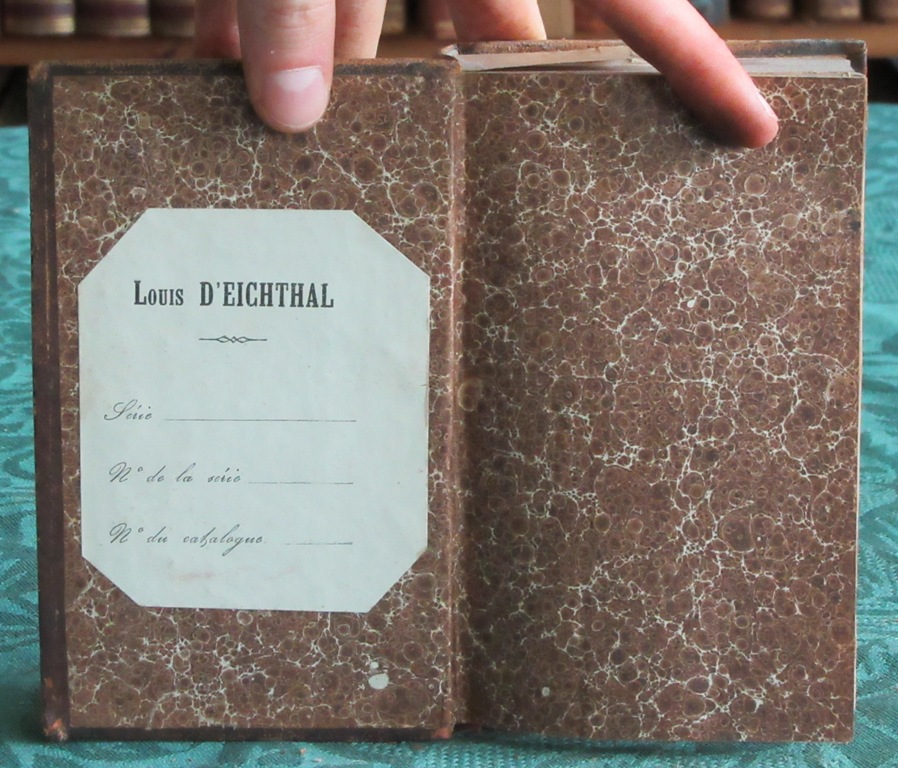 Louis D'EICHTHAL
Série
N° de la série
N° du catalogue